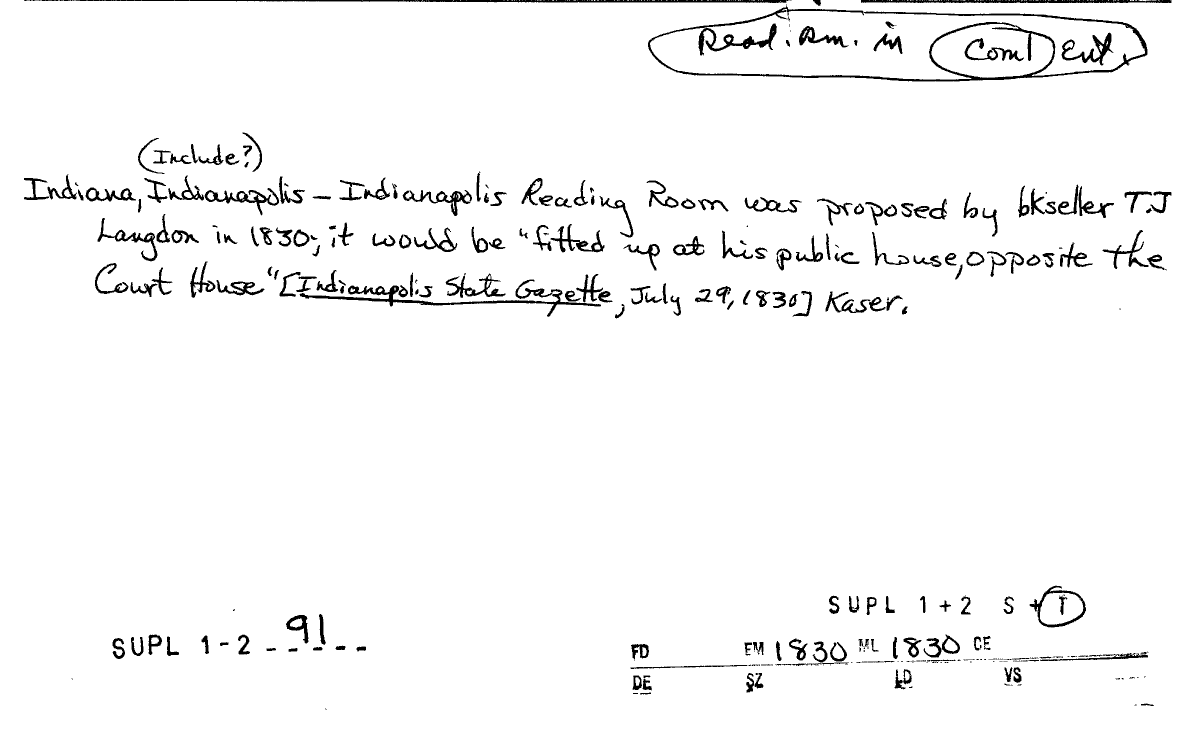 Read. Rm. in Coml Ent.
(Include?)
Indiana, Indianapolis – Indianapolis Reading Room was proposed by bkseller T.J
Langdon in 1830; it would be "fitted up at his public house, opposite the
Court House" [Indianapolis State Gazette, July 29, 1830] Kaser.
SUPL 1+2 S+T
SUPL 1-2 - 91 - -
FD EM 1830 ML 1830 CE
DE SZ LD VS